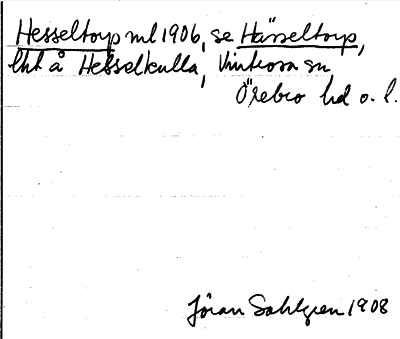 Hesseltorp ml 1906, se Hässeltorp,
lht å Hesselkulla, Vintrosa sn,
Örebro hd o. l.
Jöran Sahlgren 1908